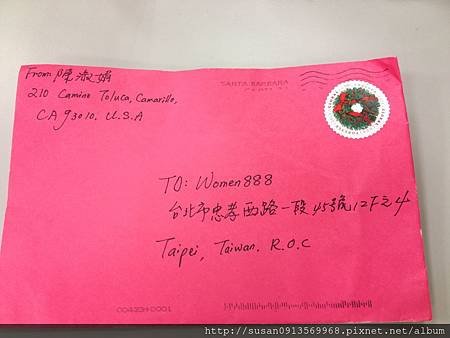 From 陳淑娟
210 Camino Toluca, Camarillo,
CA 93010. U.S.A
SANTA BARBARA
TO: Women888
台北市忠孝西路一段45號12F之4
Taipei, Taiwan. R.O.C
http://susan0913569968.pixnet.net/album